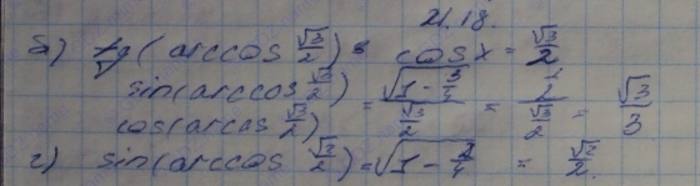 21.18.
б) tg(arccos √3/2) = cos x = √3/2
sin(arccos √3/2) / cos(arccos √3/2) = √(1 - 3/4) / (√3/2) = (1/2) / (√3/2) = √3/3
г) sin(arccos √2/2) = √(1 - 2/4) = √2/2.